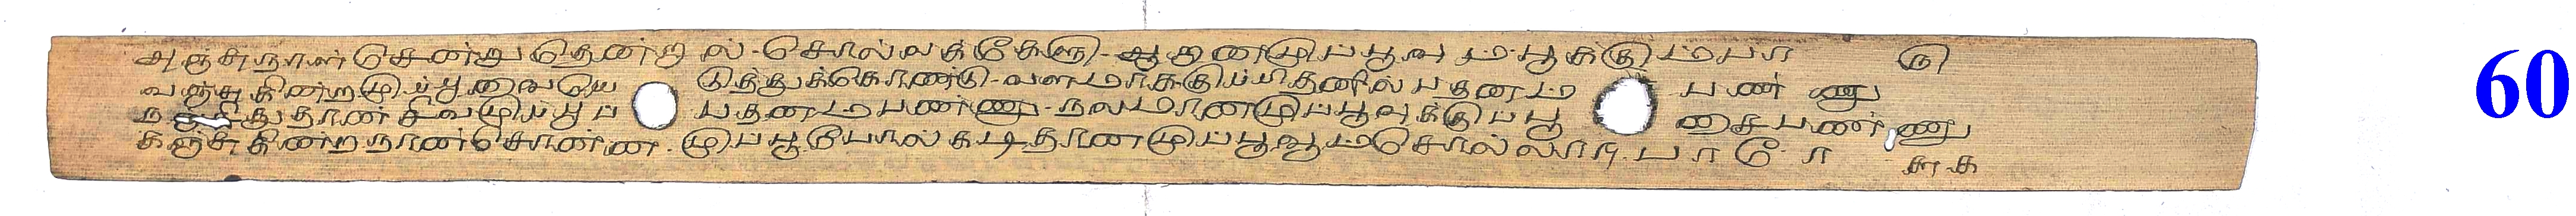 அஞ்சுநாள் சென்று தென்றல் - சொல்லக்கேளு - ஆதனமுப்பூவும் பூககு டு
வஞ்சுகின்றமுப்புவையெ டுத்துக்கொண்டு - வளமாககுப்பிதனில் பதனம் பண்ணு
துதான் சிவமுப்புப் பதனம்பண்ணு - நலமானமுப்பூவுக்குப்பூ சைபண்ணு
கஞ்சுகின்றநான்சொன்ன முப்பூபோல் கடிதானமுப்பூவும்சொல்லார்பாரே சுக
60